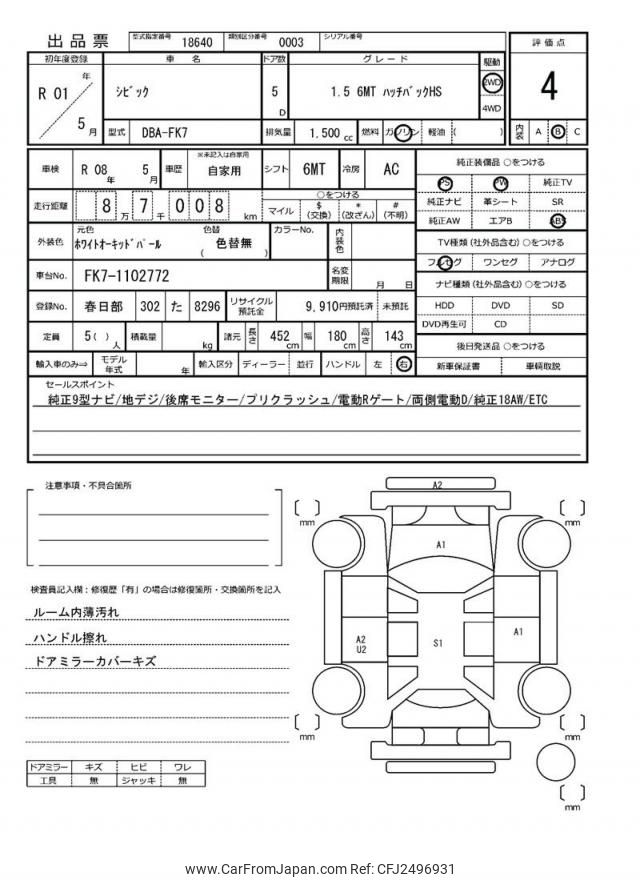 出品票 型式指定番号 18640 類別区分番号 0003 シリアル番号
初年度登録 車名 ドア数 グレード 駆動 評価点
R 01 年 5 月 シビック 5 D 1.5 6MT ハッチバックHS 2WD 4WD 4
型式 DBA-FK7 排気量 1,500 cc 燃料 ガソリン 軽油 ( ) 内装 A B C
車検 R 08 年 5 月 車歴 ※未記入は自家用 自家用 シフト 6MT 冷房 AC
純正装備品 ○をつける
PS PW 純正TV
純正ナビ 革シート SR
純正AW エアB ABS
走行距離 8 万 7 千 0 0 8 km
○をつける
マイル $ (交換) * (改ざん) # (不明)
TV種類 (社外品含む) ○をつける
フルセグ ワンセグ アナログ
外装色 元色 ホワイトオーキッドパール 色替 ( 色替無 ) カラーNo. 内装色
ナビ種類 (社外品含む) ○をつける
HDD DVD SD
DVD再生可 CD
車台No. FK7-1102772 名変期限 月 日
登録No. 春日部 302 た 8296 リサイクル預託金 9,910 円預託済 未預託
定員 5 ( ) 人 積載量 kg 諸元 長さ 452 cm 幅 180 cm 高さ 143 cm
後日発送品 ○をつける
新車保証書 車輌取説
輸入車のみ⇒ モデル年式 年 輸入区分 ディーラー 並行 ハンドル 左 右
セールスポイント
純正9型ナビ/地デジ/後席モニター/プリクラッシュ/電動Rゲート/両側電動D/純正18AW/ETC
注意事項・不具合箇所
検査員記入欄：修復歴「有」の場合は修復箇所・交換箇所を記入
ルーム内薄汚れ
ハンドル擦れ
ドアミラーカバーキズ
ドアミラー キズ ヒビ ワレ
工具 無 ジャッキ 無
A2
mm mm
A1
A2
U2
S1
A1
mm mm
mm
www.CarFromJapan.com Ref: CFJ2496931